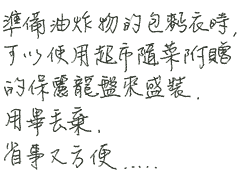 準備油炸物的包麵衣時,
可以使用超市隨菜附贈
的保麗龍盤來盛裝.
用畢丟棄.
省事又方便.....